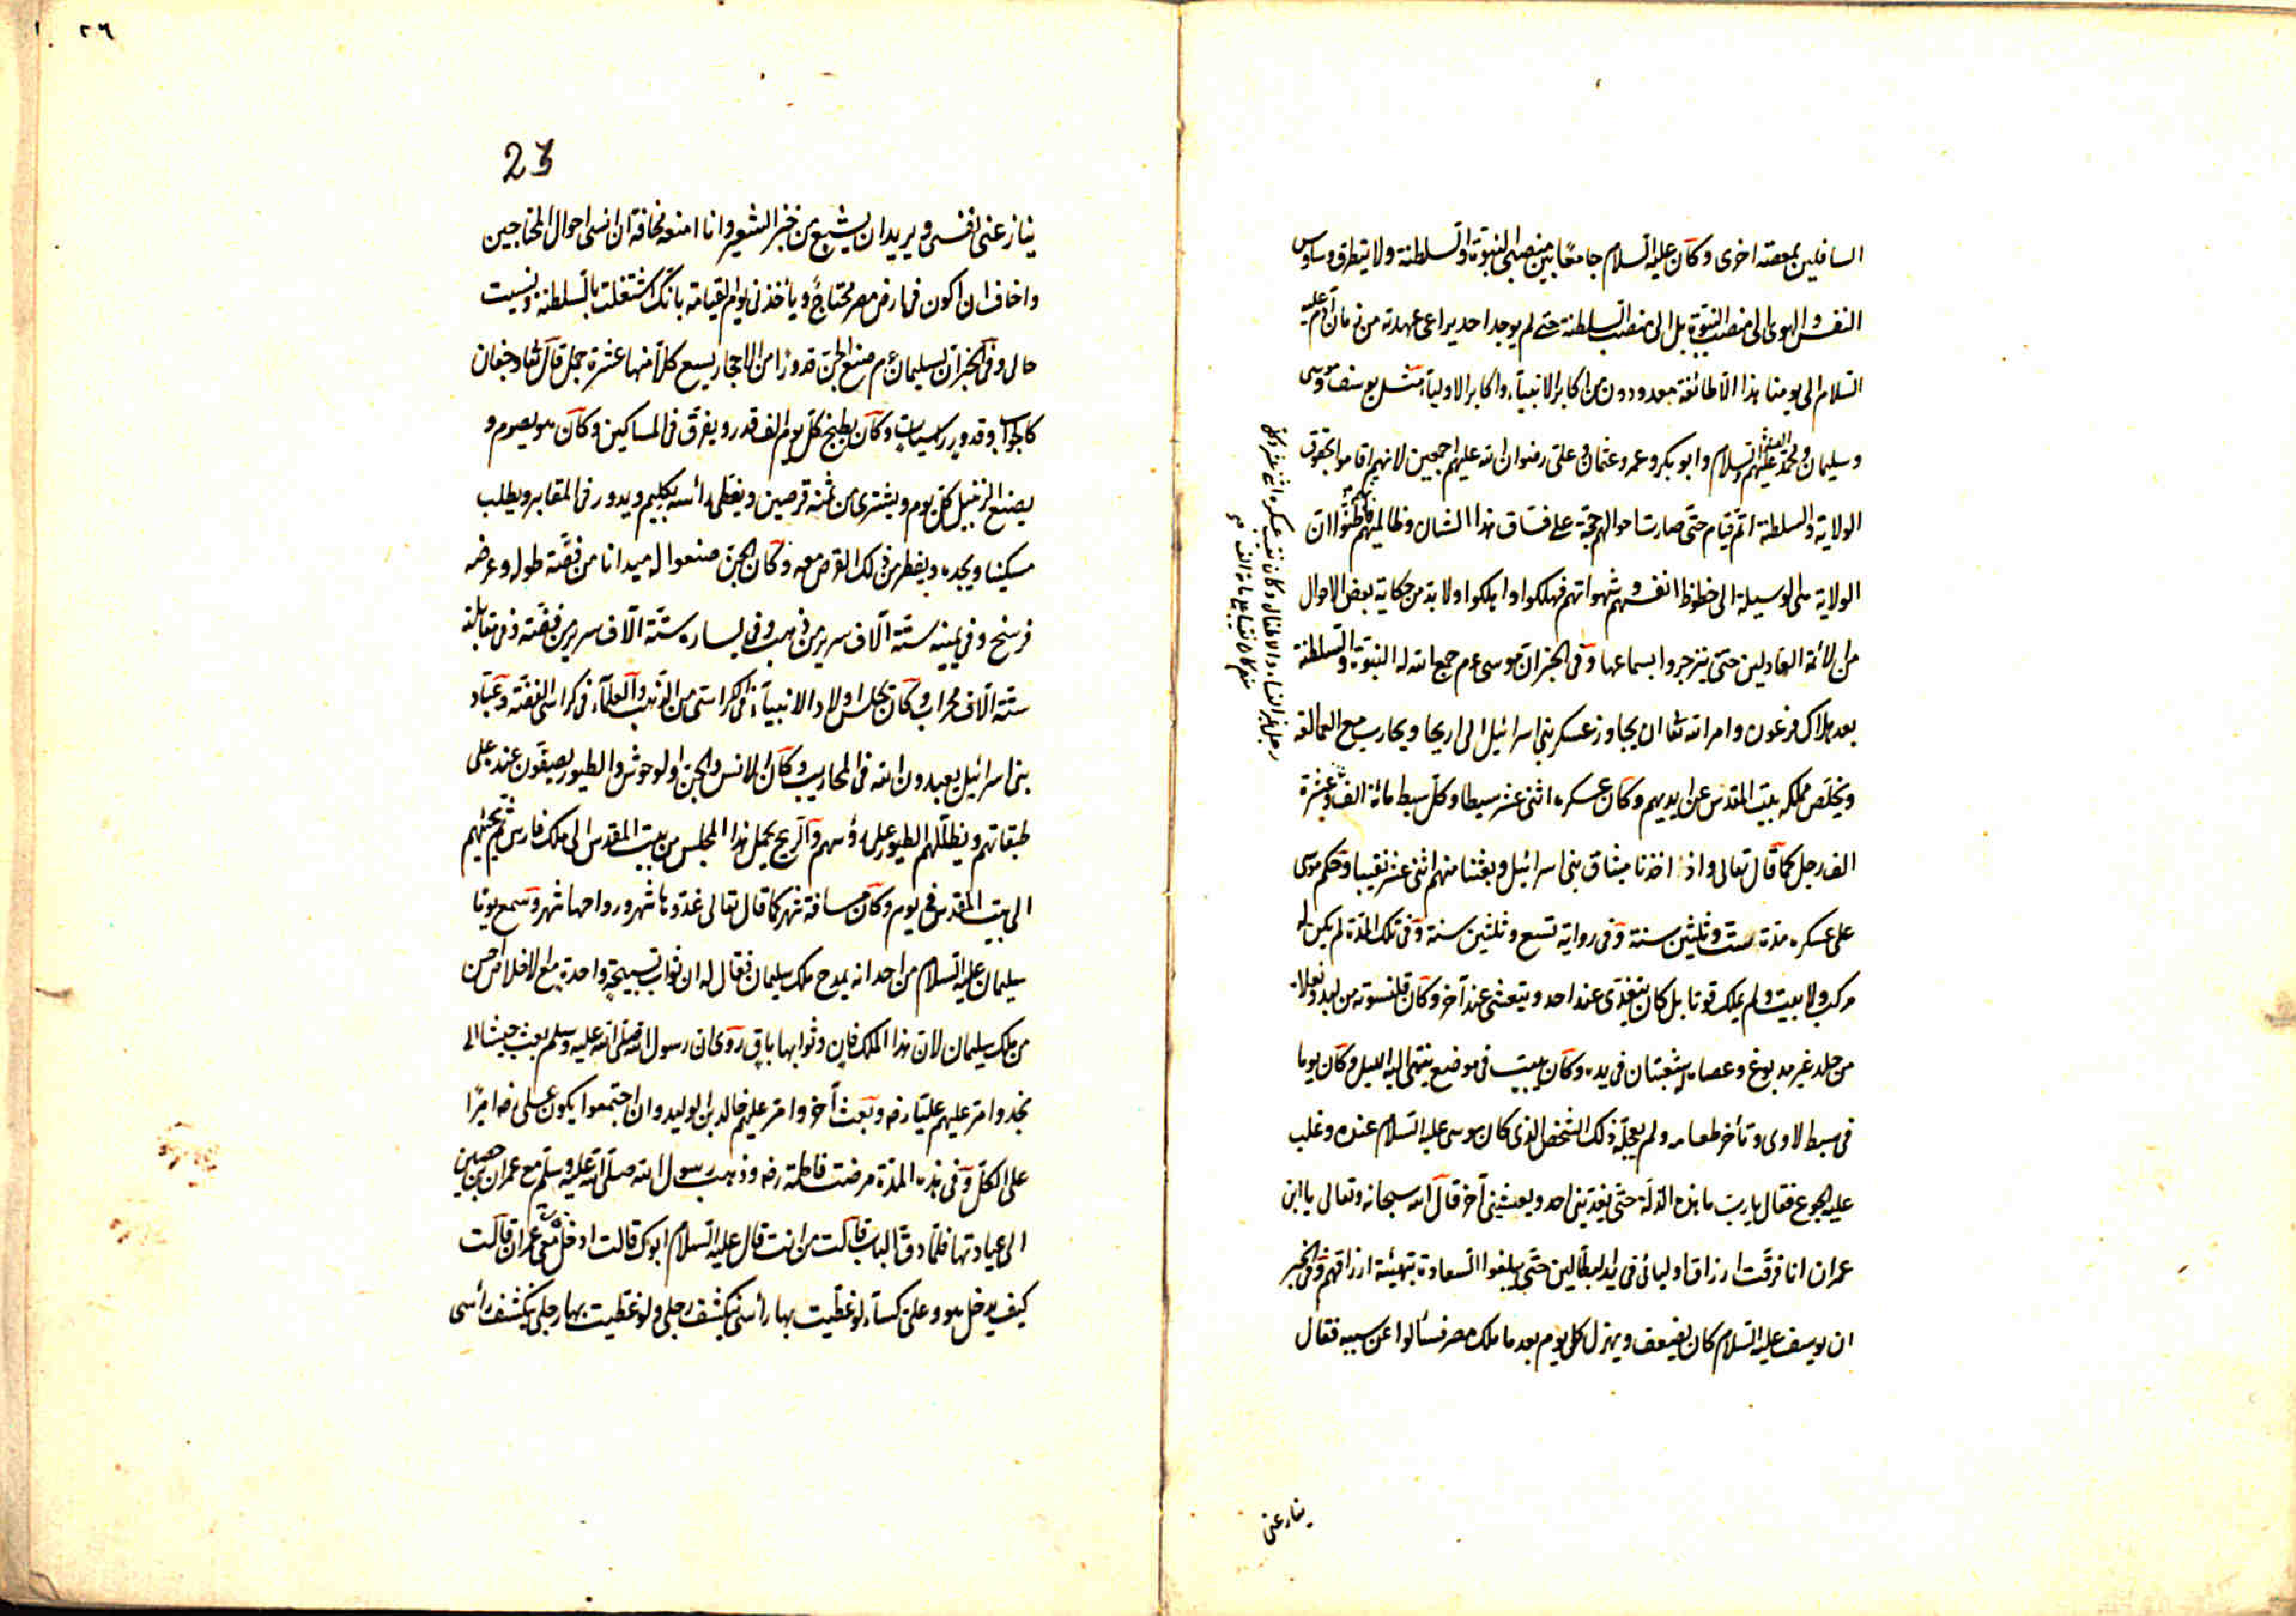 السافلين بمعصية اخرى وكان عليه السلام جامعا بين منصبى النبوة والسلطنة ولا يتطرق وساوس
النفس والهوى الى منصب النبوة بل الى منصب السلطنة حتى لم يوجد احد يراعى عهدته من زمان آدم عليه
السلام الى يومنا هذا الا طائفة معدودون من اكابر الانبياء واكابر الاولياء مثل يوسف وموسى
وسليمان ومحمد عليهم الصلوة والسلام وابو بكر وعمر وعثمان وعلى رضوان الله عليهم اجمعين لانهم اقاموا بحقوق
الولاية والسلطنة اتم قيام حتى صارت احوالهم حجة على فساق هذا الشان وظالميهم فظنوا ان
الولاية هى الوسيلة الى حظوظ انفسهم وشهواتهم فهلكوا واهلكوا ولا بد من حكاية بعض الاحوال
من الائمة العادلين حتى ينزجروا بسماعها وفى الخبر ان موسى عم جمع الله له النبوة والسلطنة
بعد هلاك فرعون وامر الله تعا ان يجاوز عسكر بنى اسرائيل الى اريحا ويحارب مع العمالقة
ويخلص مملكة بيت المقدس عن ايديهم وكان عسكره اثنى عشر سبطا وكل سبط مائة الف وعشرة
الف رجل كما قال تعالى واذ اخذنا ميثاق بنى اسرائيل وبعثنا منهم اثنى عشر نقيبا وحكم موسى
على عسكره مدة ست وثلثين سنة وفى رواية تسع وثلثين سنة وفى تلك المدة لم يكن له
مركب ولا بيت ولم يملك قوتا بل كان يتغدى عند احد ويتعشى عند آخر وكان قلنسوته من لبد ونعلاه
من جلد غير مدبوغ وعصا له شعبتان فى يده وكان يبيت فى موضع ينتهى اليه الليل وكان يوما
فى سبط لاوى وتأخر طعامه ولم يعجله ذلك الشخص الذى كان موسى عليه السلام عنده وغلب
عليه الجوع فقال يا رب ما هذه الذلة حتى يغدينى احد ويعشينى آخر قال الله سبحانه وتعالى يا ابن
عمران انا فرقت ارزاق اوليائى فى ايدى البطالين حتى يبلغوا السعادة بتهيئة ارزاقهم وفى الخبر
ان يوسف عليه السلام كان يضعف ويهزل كل يوم بعد ما ملك مصر فسألوا عن سببه فقال
رجل غير النساء والاطفال وكان نقيب عسكره اثنى عشر
ينازعنى
٢٦
23
ينازعنى نفسى ويريد ان يشبع من خبز الشعير وانا امنعه مخافة ان انسى احوال المحتاجين
واخاف ان اكون فى ارض مصر محتاج ويأخذنى يوم القيامة بانك اشتغلت بالسلطنة ونسيت
حالى وفى الخبر ان لسليمان عم صنع الجن قدورا من الاحجار يسع كلا منها عشرة جمل قال تعا وجفان
كالجواب وقدور راسيات وكان يطبخ كل يوم الف قدر ويفرق فى المساكين وكان هو يصوم و
يصنع الزنبيل كل يوم ويشترى من ثمنه قرصين ويغطى رأسه بكليم ويدور فى المقابر ويطلب
مسكينا ويجده ويفطر من ذلك القرص معه وكان الجن صنعوا له ميدانا من فضة طوله وعرضه
فرسخ وفى يمينه ستة آلاف سرير من ذهب وفى يساره ستة آلاف سرير من فضة وفى مقابلته
ستة آلاف محراب وكان يجلس اولاد الانبياء فى الكراسى من الذهب والعلماء فى كراسى الفضة وعباد
بنى اسرائيل يعبدون الله فى المحاريب وكان الانس والجن والوحوش والطيور يصفون عنده على
طبقاتهم ويظللهم الطيور على رؤسهم والريح يحمل هذا المجلس من بيت المقدس الى ملك فارس ثم يجيئهم
الى بيت المقدس فى يوم وكان مسافة شهر كما قال تعالى غدوها شهر ورواحها شهر وسمع يوما
سليمان عليه السلام من احد انه يمدح ملك سليمان فقال له ان ثواب تسبيحة واحدة مع الاخلاص احسن
من ملك سليمان لان هذا الملك فان وثوابها باق روى ان رسول الله صلى الله عليه وسلم بعث جيشا الى
نجد وامر عليهم عليا رضه وبعث آخر وامر عليهم خالد بن الوليد وان اجتمعوا يكون على رضه اميرا
على الكل وفى هذه المدة مرضت فاطمة رضه وذهب رسول الله صلى الله عليه وسلم مع عمران بن حصين
الى عيادتها فلما دق الباب قالت من انت قال عليه السلام ابوك قالت ادخل قال معى عمران قالت
كيف يدخل هو وعلى كساء لو غطيت بها رأسى ينكشف رجلى ولو غطيت بها رجلى ينكشف رأسى